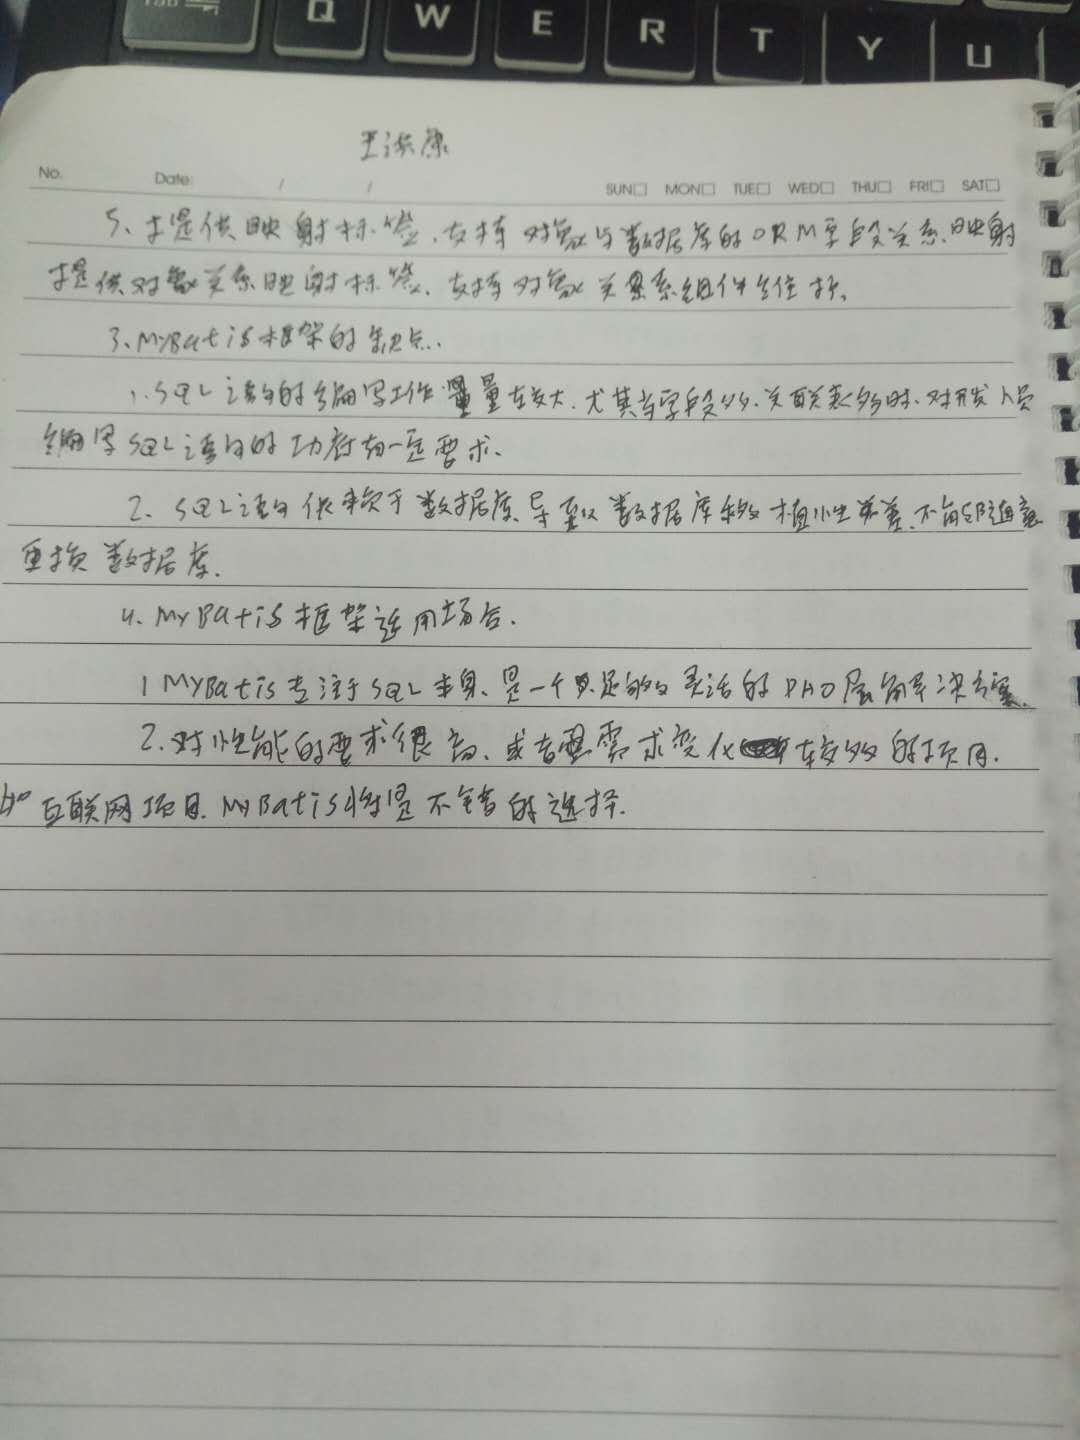 Q W E R T Y U
No. Date: / / SUN□ MON□ TUE□ WED□ THU□ FRI□ SAT□
5、提供映射标签、支持对象与数据库的ORM字段关系映射
提供对象关系映射标签、支持对象关系系组件维护、
3、MyBatis框架的缺点.
1、SQL语句的编写工作量量较大、尤其当字段多、关联表多时、对开发人员
编写SQL语句的功底有一定要求.
2、SQL语句依赖于数据库、导致数据库移植性差差、不能随意
更换数据库.
4、MyBatis框架适用场合.
1 MyBatis专注于SQL本身、是一个足够灵活的DAO层解决方案.
2.对性能的要求很高、或者需求变化较多的项目.
如互联网项目、MyBatis将是不错的选择.